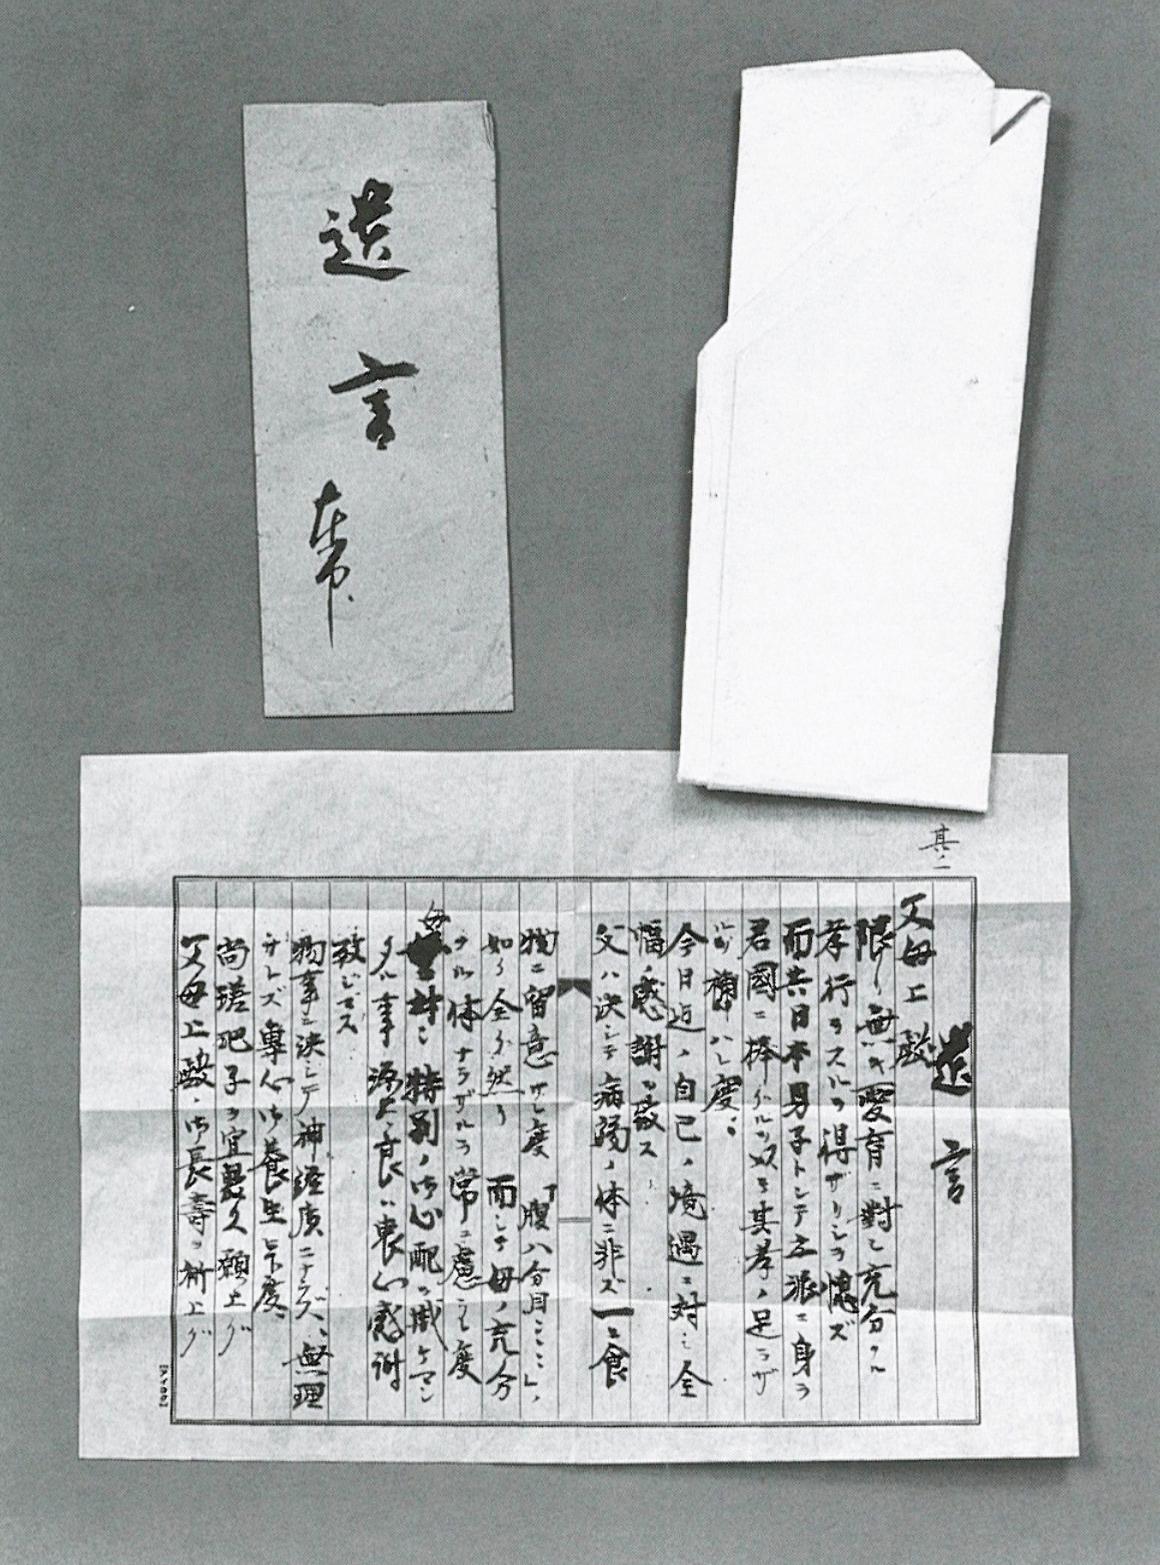 遺言
其ノ二
遺言
父母上殿
限リ無キ愛育ニ対シ充分ナル
孝行ヲスルヲ得ザリシヲ愧ズ
而共日本男子トシテ立派ニ身ヲ
君國ニ捧グル
其孝ノ足ラザ
度
今日迄ノ自己ノ境遇ニ対シ全
幅ノ感謝ヲ致ス
父ハ決シテ病弱ノ体ニ非ズ 一ニ食
物ニ留意サレ度 「腹八分目
如ク全ク然リ 而シテ母ノ充分
ナル体ナラザルヲ常ニ慮ラレ度
母ニ対シ特別ノ御心配ヲ掛ケマシ
タル事 深ク良ク衷心感謝
致シマス
物事ニ決シテ神経質ニナラズ、無理
ナレズ専心御養生アレ度
尚瑳耙子ヲ宜敷ク願上グ
父母上殿ノ御長壽ヲ祈上グ